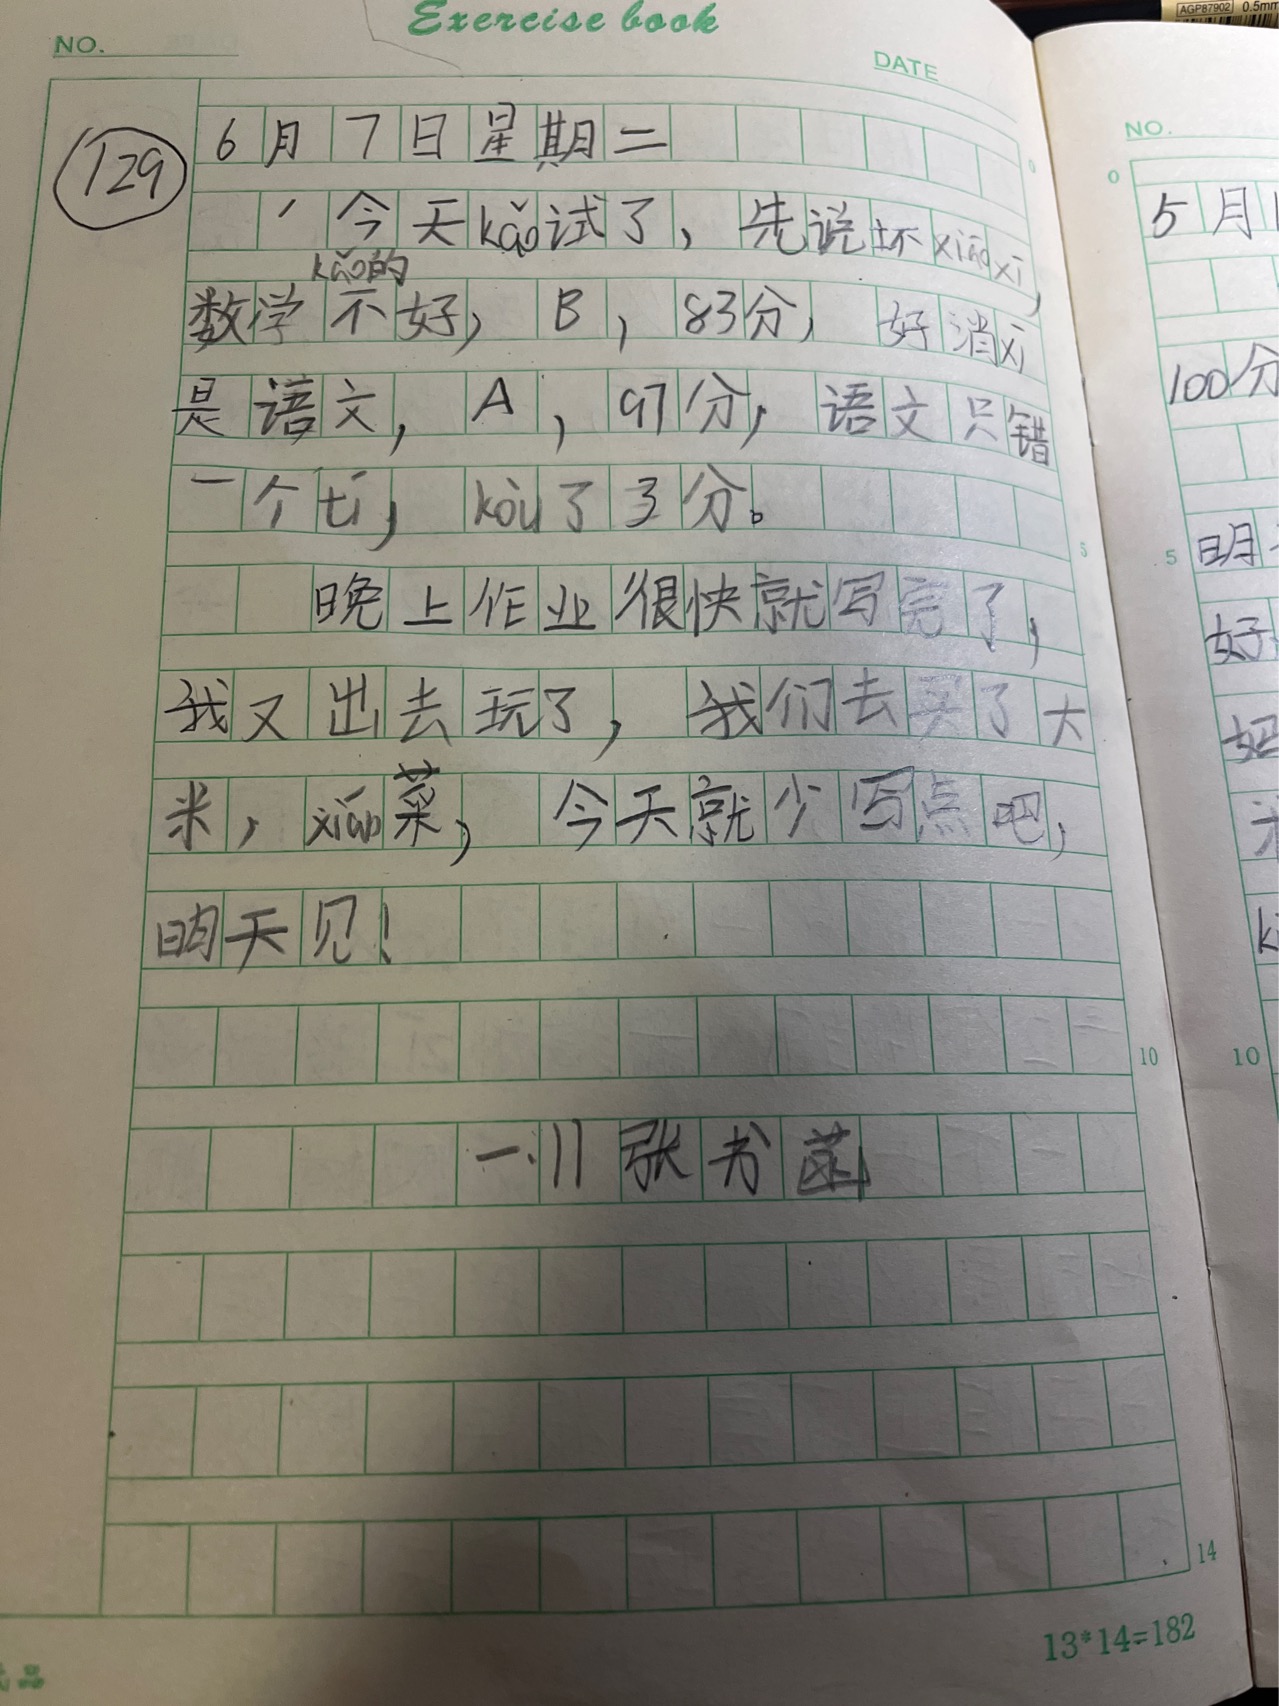 Exercise book
NO.
DATE
129
6月7日星期二
今天kǎo试了，先说坏xiāoxī，
kǎo的
数学不好，B，83分，好消xī
是语文，A，97分，语文只错
一个tí，kòu了3分。
晚上作业很快就写完了，
我又出去玩了，我们去买了大
米，xiǎo菜，今天就少写点吧，
明天见！
一.11张书菡
0
5
10
14
13*14=182
品
AGP87902 0.5mm
NO.
0
5月
100分
5
明
好
妈
10